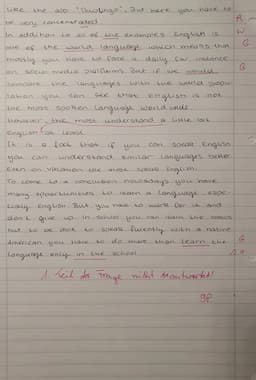 like the app "Duolingo". But here you have to
be very concentrated. R
In addition to all of the examples English is W
one of the world language which means that G
mostly you have to face it daily for instance
on social media platforms. But if we would G
compare the languages with the world popu-
lation you can see that English is not
the most spoken language world wide
However, the most understand a little bit
English at least.
It is a fact that if you can speak English
you can understand similar languages better
Even on vacation the most speak English.
To come to a conclusion nowadays you have
many opportunities to learn a language espec-
ially English. But you have to work for it and
don't give up. In school you can learn the basics
but to be able to speak fluently with a native
American you have to do more than learn the G
language only in the school.
1. Teil der Frage nicht beantwortet!
9P.